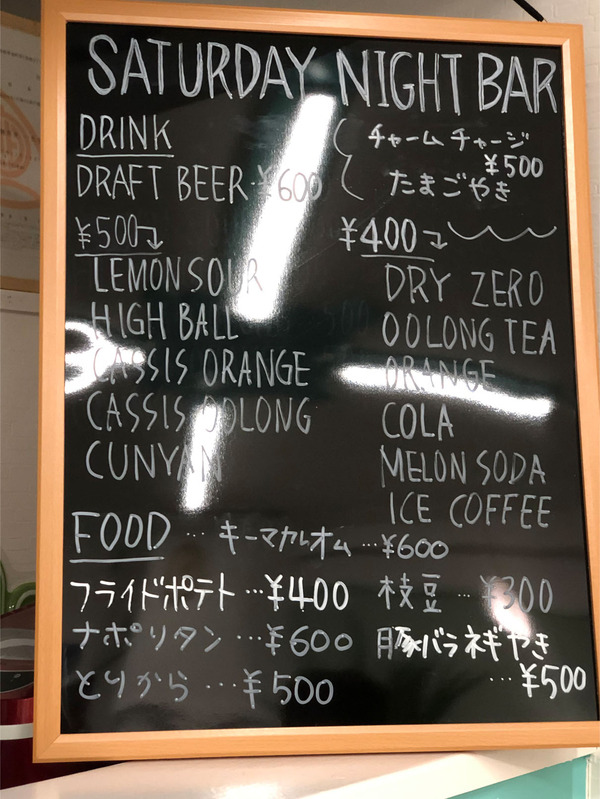 SATURDAY NIGHT BAR
DRINK
DRAFT BEER ¥600
チャームチャージ
¥500
たまごやき
¥500
LEMON SOUR
HIGH BALL
CASSIS ORANGE
CASSIS OOLONG
CUNYAN
¥400
DRY ZERO
OOLONG TEA
ORANGE
COLA
MELON SODA
ICE COFFEE
FOOD … キーマカレオム … ¥600
フライドポテト … ¥400
枝豆 … ¥300
ナポリタン … ¥600
豚バラネギやき
… ¥500
とりから … ¥500